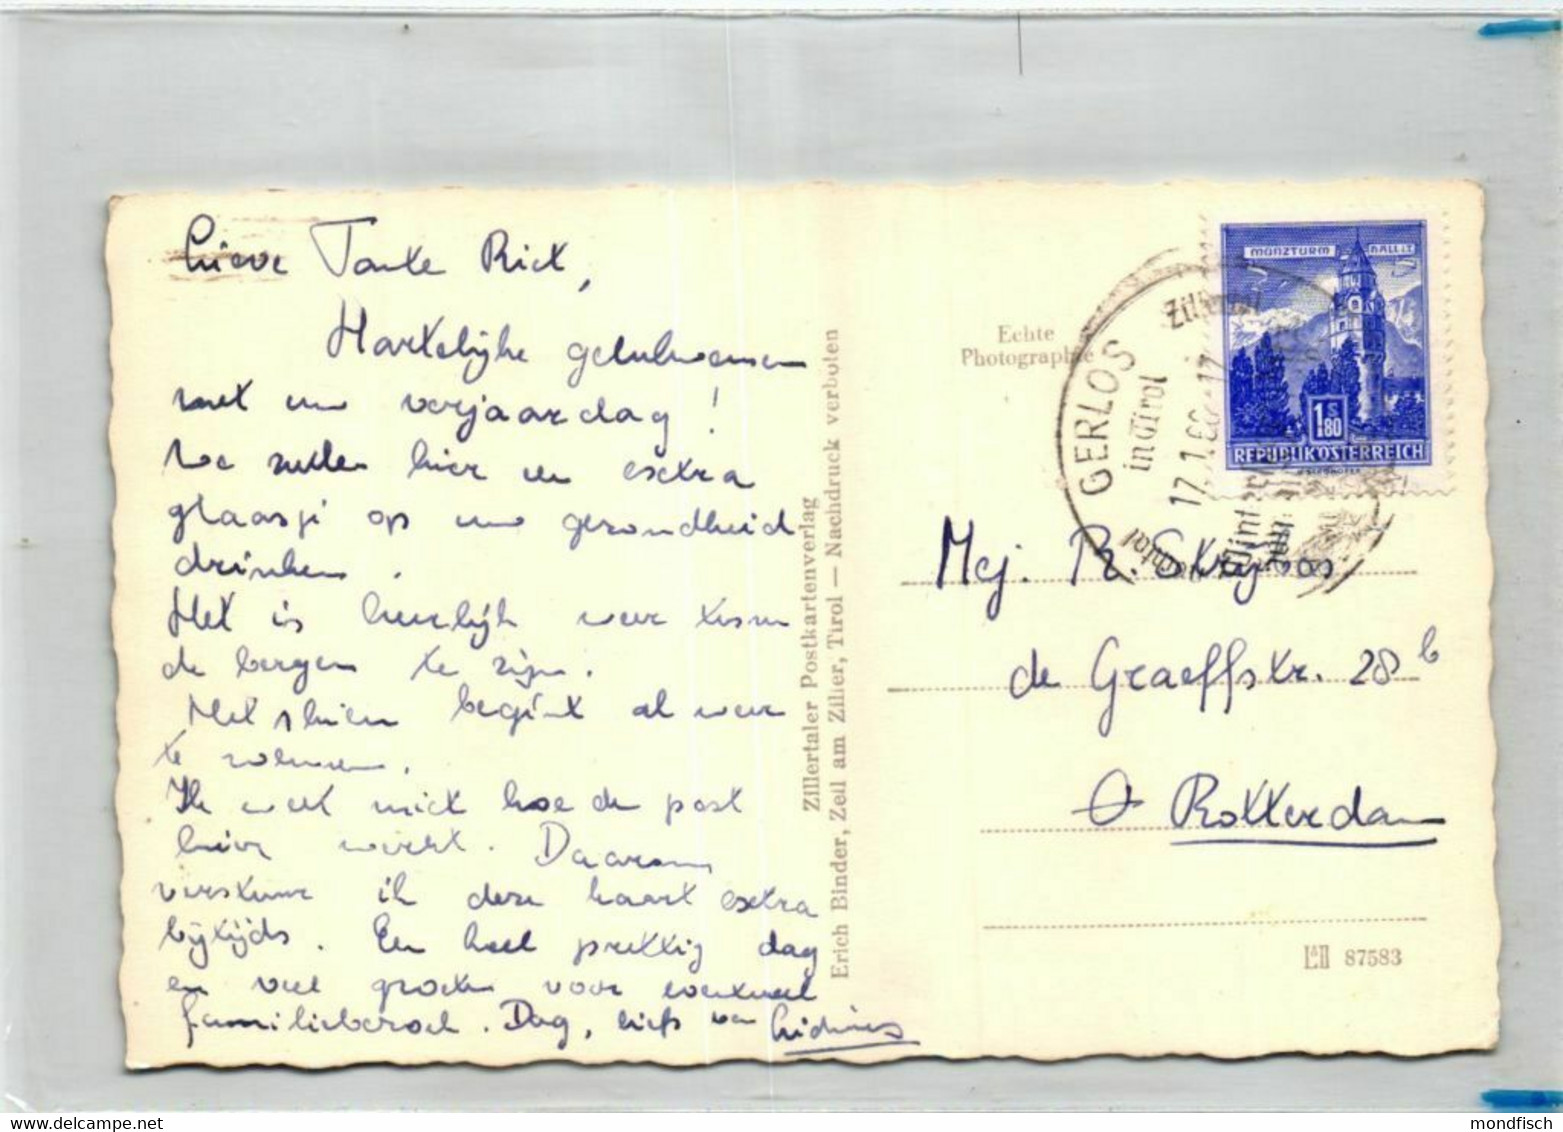 Lieve Tante Riek,
Hartelijke gelukwensen
met uw verjaardag!
We zullen hier een extra
glaasje op uw gezondheid
drinken.
Het is heerlijk weer tussen
de bergen te zijn.
Het skiën begint al weer
te wennen.
Ik weet niet hoe de post
hier werkt. Daarom
verstuur ik deze kaart extra
bijtijds. Een heel prettig dag
en veel groeten voor eventueel
familiebezoek. Dag, liefs van
Zillertaler Postkartenverlag
Erich Binder, Zell am Ziller, Tirol — Nachdruck verboten
Echte
Photographie
GERLOS
in Tirol
Zillertal
17.1.60
Winter
MÜNZTURM
HALL I.T.
1.S 80
REPUBLIK ÖSTERREICH
Mej. R.
de Graeffstr. 28 b
Rotterdam
87583
www.delcampe.net
mondfisch